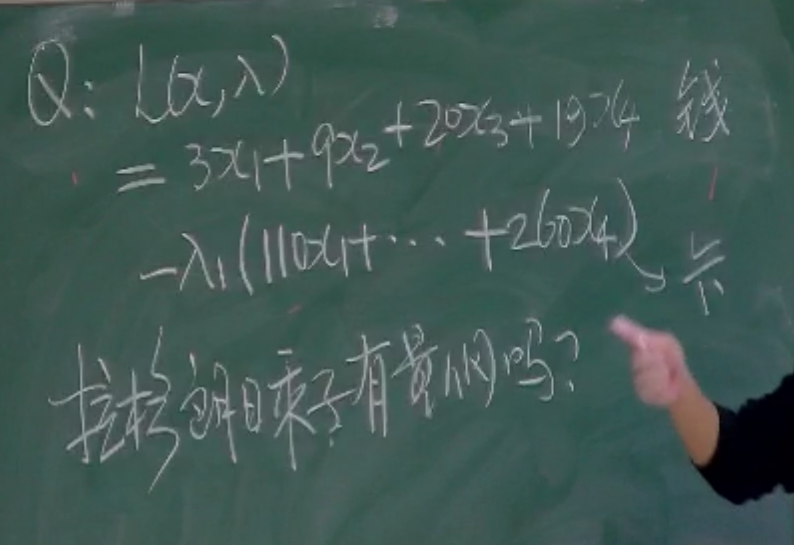 Q: L(x,λ)
= 3x₁+9x₂+20x₃+19x₄ 钱
-λ₁(110x₁+…+260x₄)→卡
拉格朗日乘子有量纲吗?